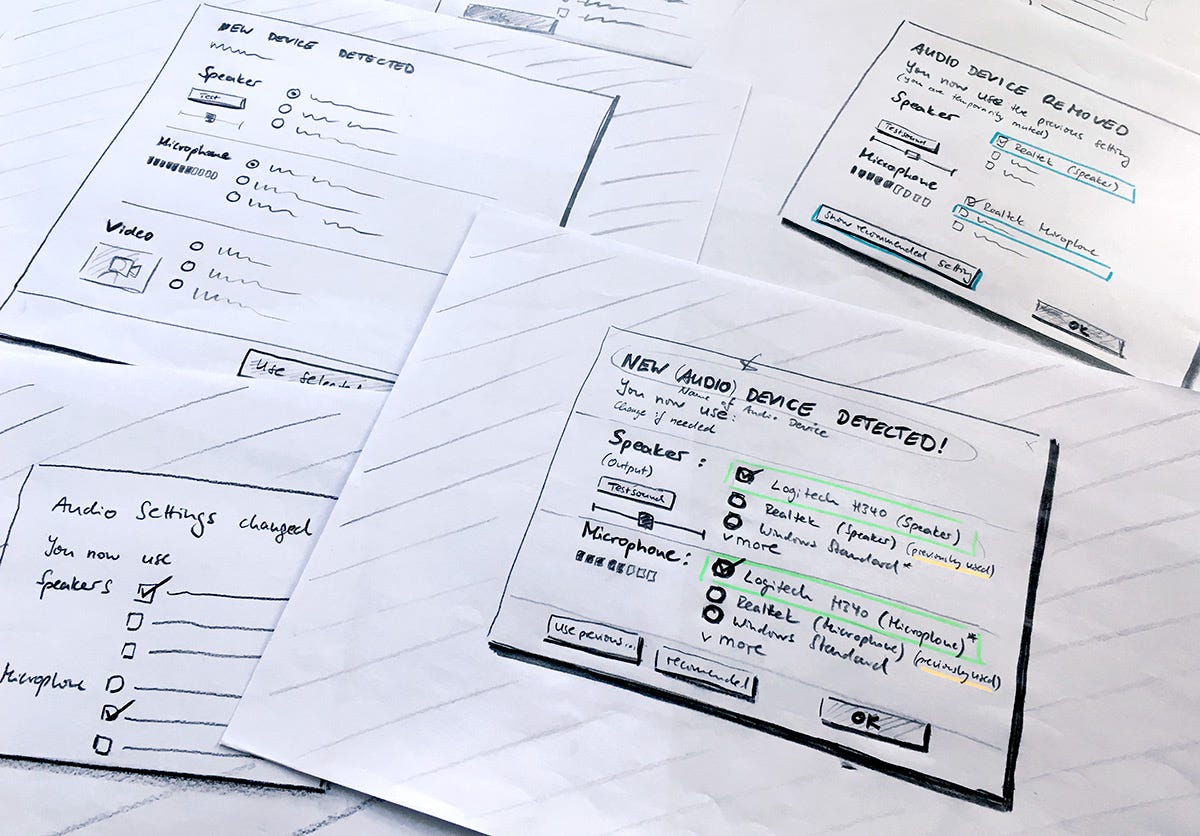 NEW DEVICE DETECTED
Speaker
Test
Microphone
Video
Use selected
AUDIO DEVICE REMOVED
You now use the previous setting
(you are temporarily muted)
Speaker
Testsound
Realtek (Speaker)
Microphone
Realtek Microphone
Show recommended setting
OK
Audio Settings changed
You now use
Speakers
Microphone
NEW (AUDIO) DEVICE DETECTED!
Name of Audio Device
You now use:
Change if needed
Speaker :
(Output)
Testsound
Logitech H340 (Speaker)
Realtek (Speaker)
Windows Standard* (previously used)
v more
Microphone :
Logitech H340 (Microphone)*
Realtek (Microphone)
Windows Standard (previously used)
v more
use previous...
recommended
OK